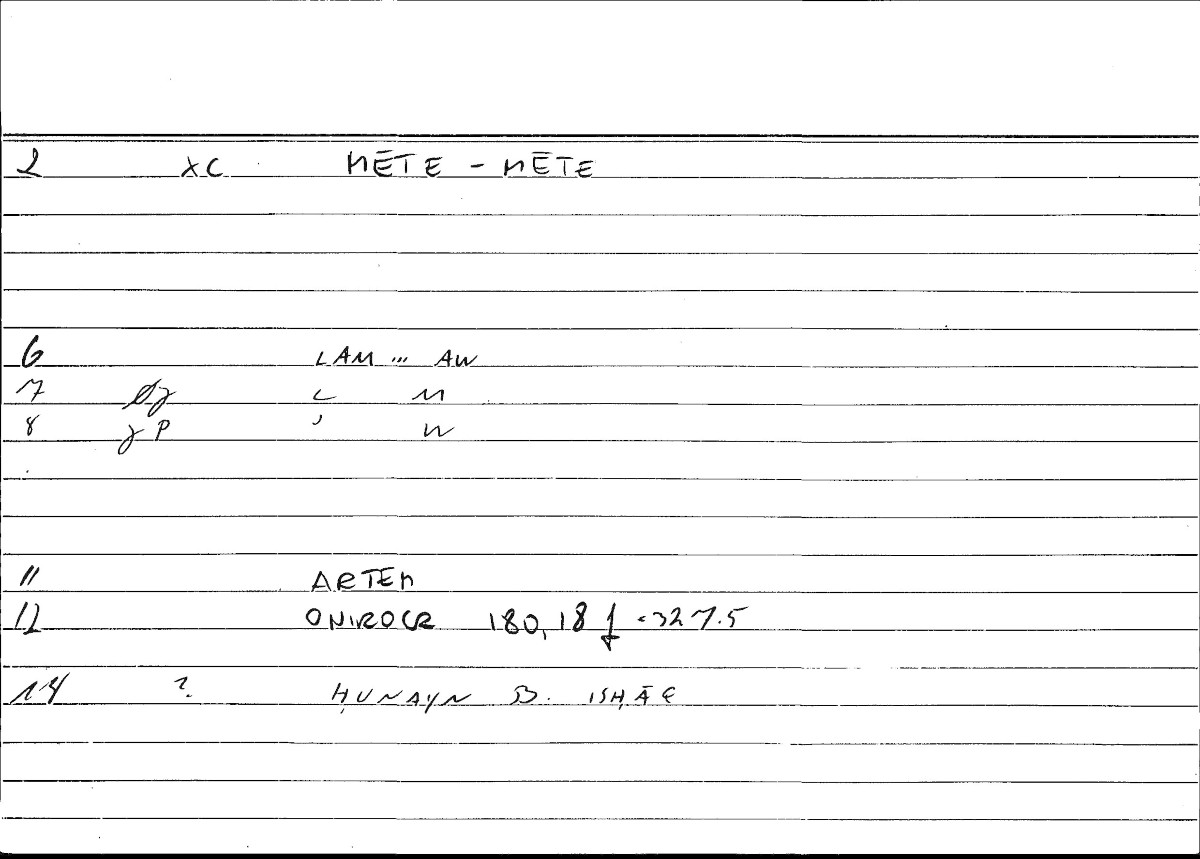 2 XC MĒTE - MĒTE
6 LAM ... AW
7 M
8 P W
11 ARTEM
12 ONIROCR 180,18 f = 327.5
14 ? ḤUNAYN B. ISḤĀQ